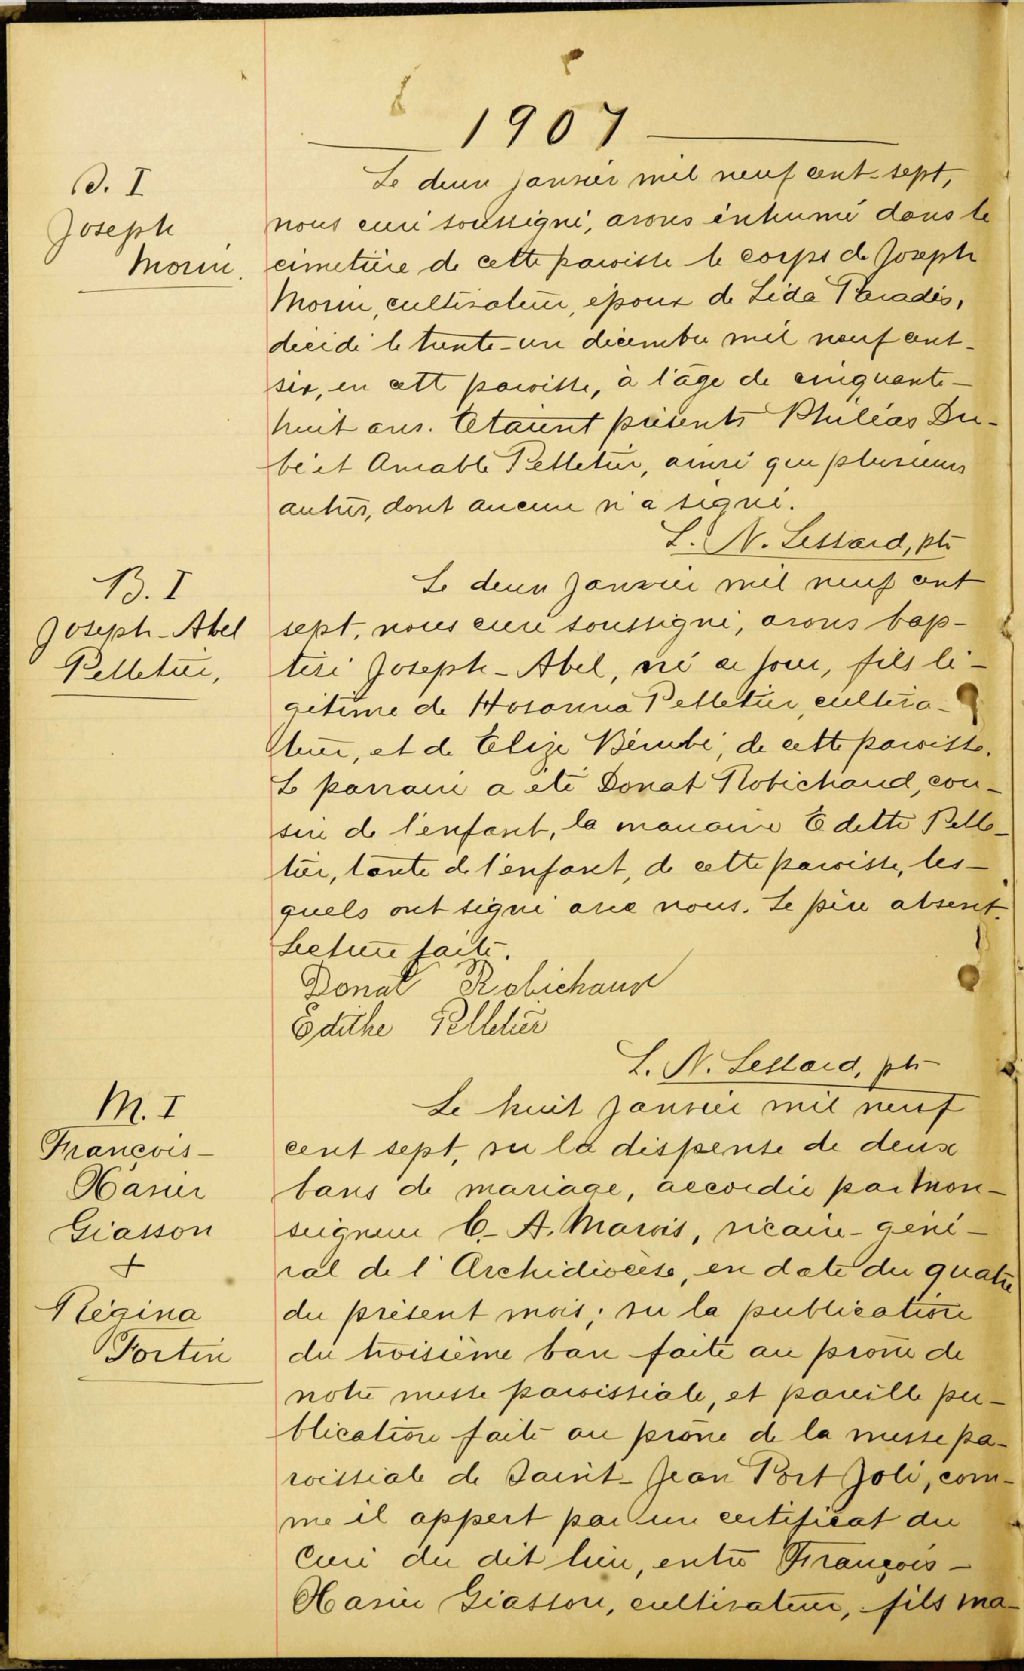 1907
S. I
Joseph
Morin.
Le deux janvier mil neuf cent-sept,
nous curé soussigné, avons inhumé dans le
cimetière de cette paroisse le corps de Joseph
Morin, cultivateur, époux de Léda Paradis,
décédé le trente-un décembre mil neuf cent-
six, en cette paroisse, à l'âge de cinquante-
huit ans. Etaient présents Philéas Du-
bé et Amable Pelletier, ainsi que plusieurs
autres, dont aucun n'a signé.
L. N. Lessard, ptre
B. I
Joseph-Abel
Pelletier,
Le deux janvier mil neuf cent
sept, nous curé soussigné, avons bap-
tisé Joseph-Abel, né ce jour, fils lé-
gitime de Hosanna Pelletier, cultiva-
teur, et de Elize Bérubé, de cette paroisse.
Le parrain a été Donat Robichaud, cou-
sin de l'enfant, la marraine Edette Pelle-
tier, tante de l'enfant, de cette paroisse, les-
quels ont signé avec nous. Le père absent.
Lecture faite.
Donat Robichaud
Edithe Pelletier
L. N. Lessard, ptre
M. I
François-
Xavier
Giasson
+
Régina
Fortin
Le huit janvier mil neuf
cent sept, vu la dispense de deux
bans de mariage, accordée par Mon-
seigneur C.-A. Marois, vicaire-géné-
ral de l'Archidiocèse, en date du quatre
du présent mois; vu la publication
du troisième ban faite au prône de
notre messe paroissiale, et pareille pu-
blication faite au prône de la messe pa-
roissiale de Saint-Jean Port Joli, com-
me il appert par un certificat du
Curé du dit lieu, entre François-
Xavier Giasson, cultivateur, fils ma-